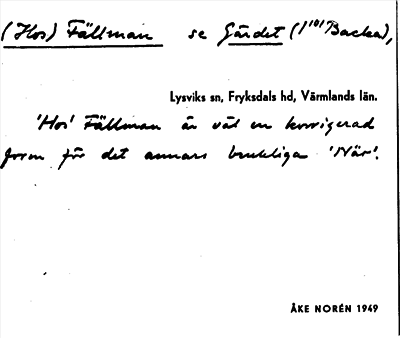 (Hos) Fällman se Gärdet (1101 Backa),
Lysviks sn, Fryksdals hd, Värmlands län.
'Hos' Fällman är väl en korrigerad
form för det annars brukliga 'När'.
ÅKE NORÉN 1949